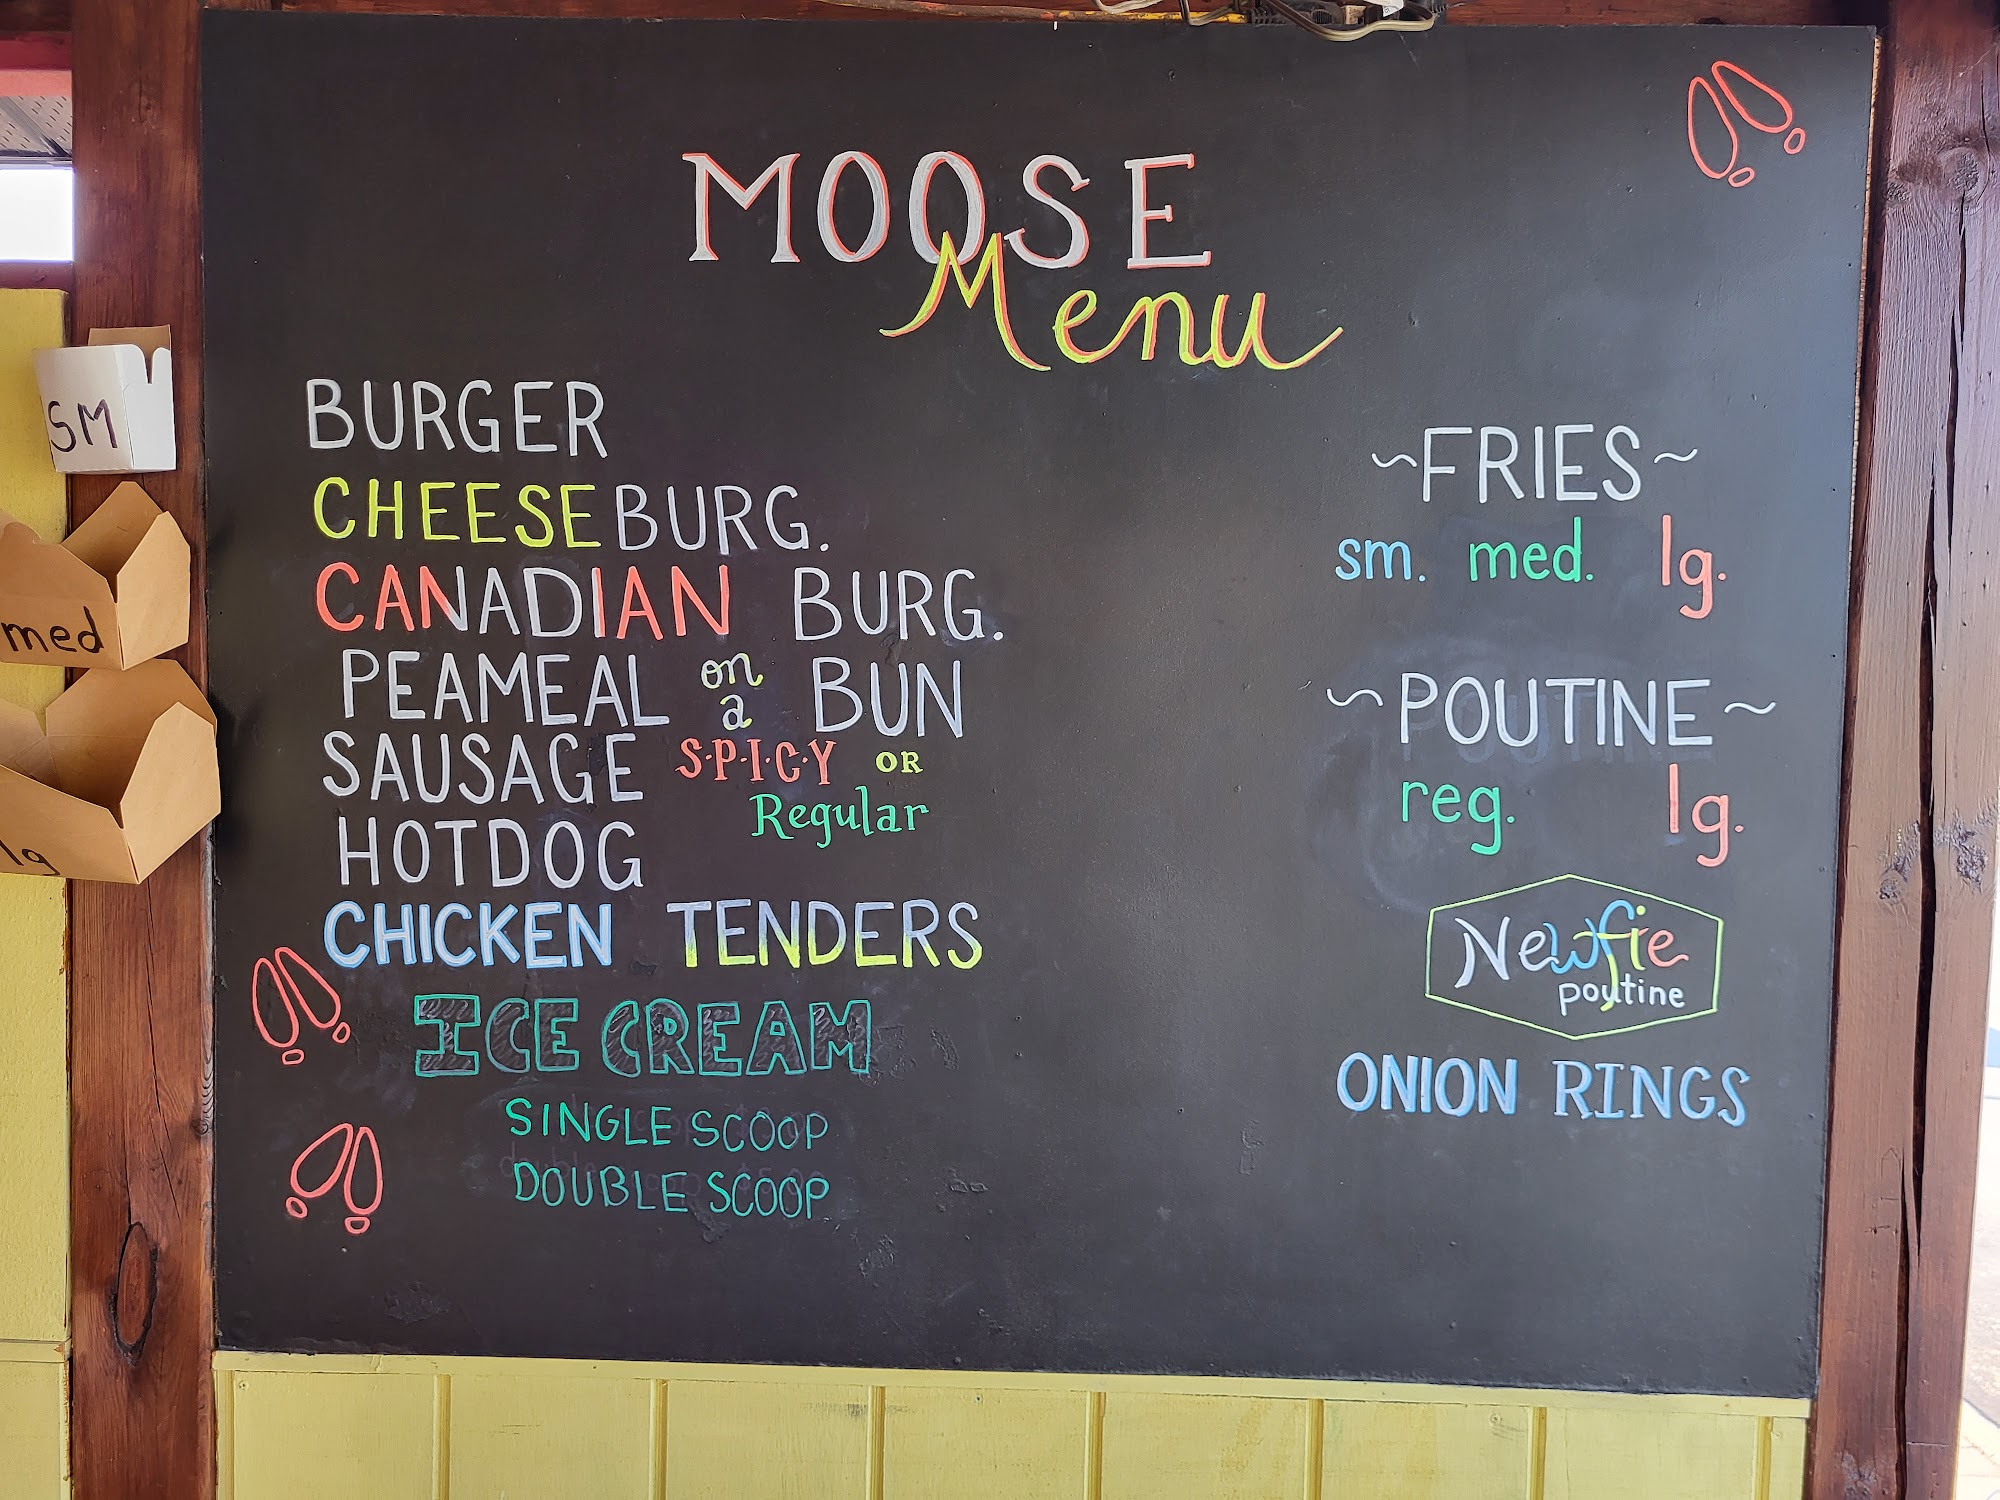 MOOSE
Menu
BURGER
CHEESEBURG.
CANADIAN BURG.
PEAMEAL on a BUN
SAUSAGE S·P·I·C·Y OR
Regular
HOTDOG
CHICKEN TENDERS
ICE CREAM
SINGLE SCOOP
DOUBLE SCOOP
~FRIES~
sm. med. lg.
~POUTINE~
reg. lg.
Newfie
poutine
ONION RINGS
SM
med
lg